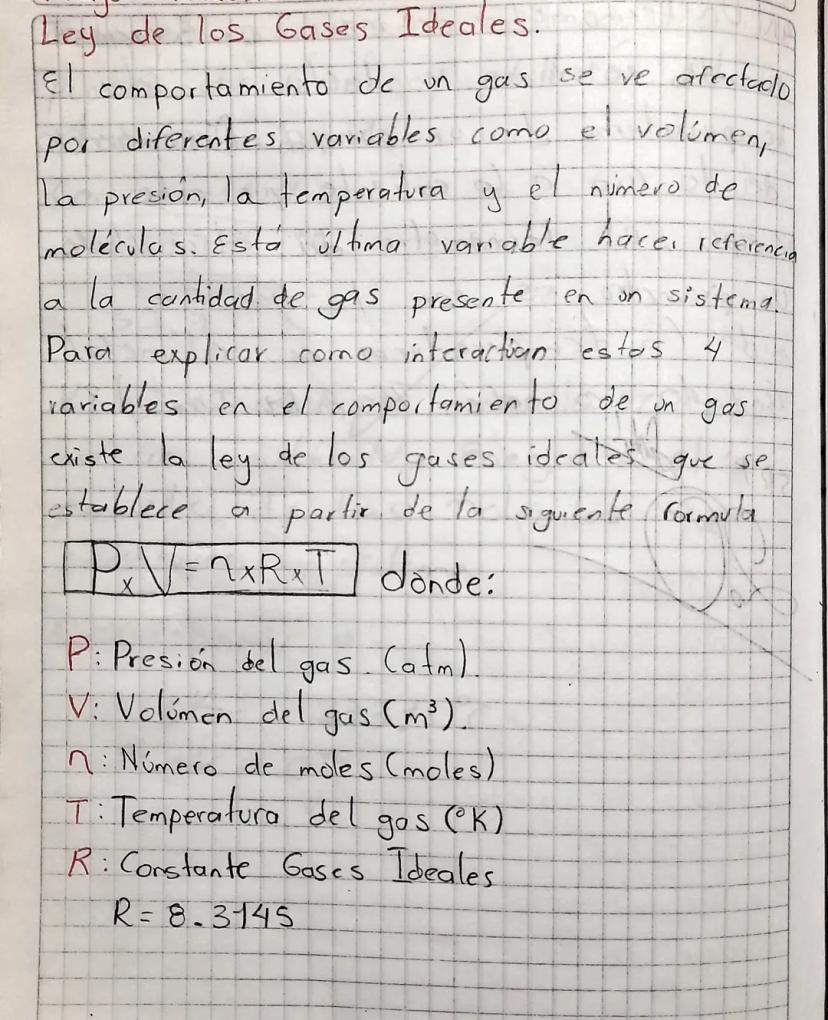 Ley de los Gases Ideales.
El comportamiento de un gas se ve afectado
por diferentes variables como el volúmen,
la presión, la temperatura y el número de
moléculas. Está última variable hacer referencia
a la cantidad de gas presente en un sistema.
Para explicar como interactúan estas 4
variables en el comportamiento de un gas
existe la ley de los gases ideales que se
establece a partir de la siguiente formula
PxV=nxRxT donde:
P: Presión del gas (atm).
V: Volúmen del gas (m³).
n: Número de moles (moles)
T: Temperatura del gas (°K)
R: Constante Gases Ideales
R= 8.3145